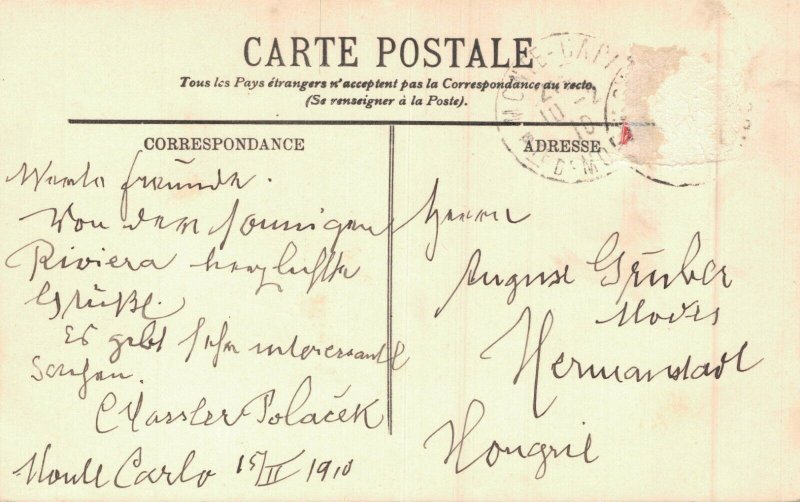 CARTE POSTALE
Tous les Pays étrangers n'acceptent pas la Correspondance au recto.
(Se renseigner à la Poste).
CORRESPONDANCE
ADRESSE
Werte Freunde.
Von der sonnigen
Riviera herzlichste
Grüße.
Es gibt sehr interessante
Sachen.
Polaček
Monte Carlo 15/II 1910
Herrn
August Gruber
Modes
Hermanstadt
Hongrie
MONTE-CARLO